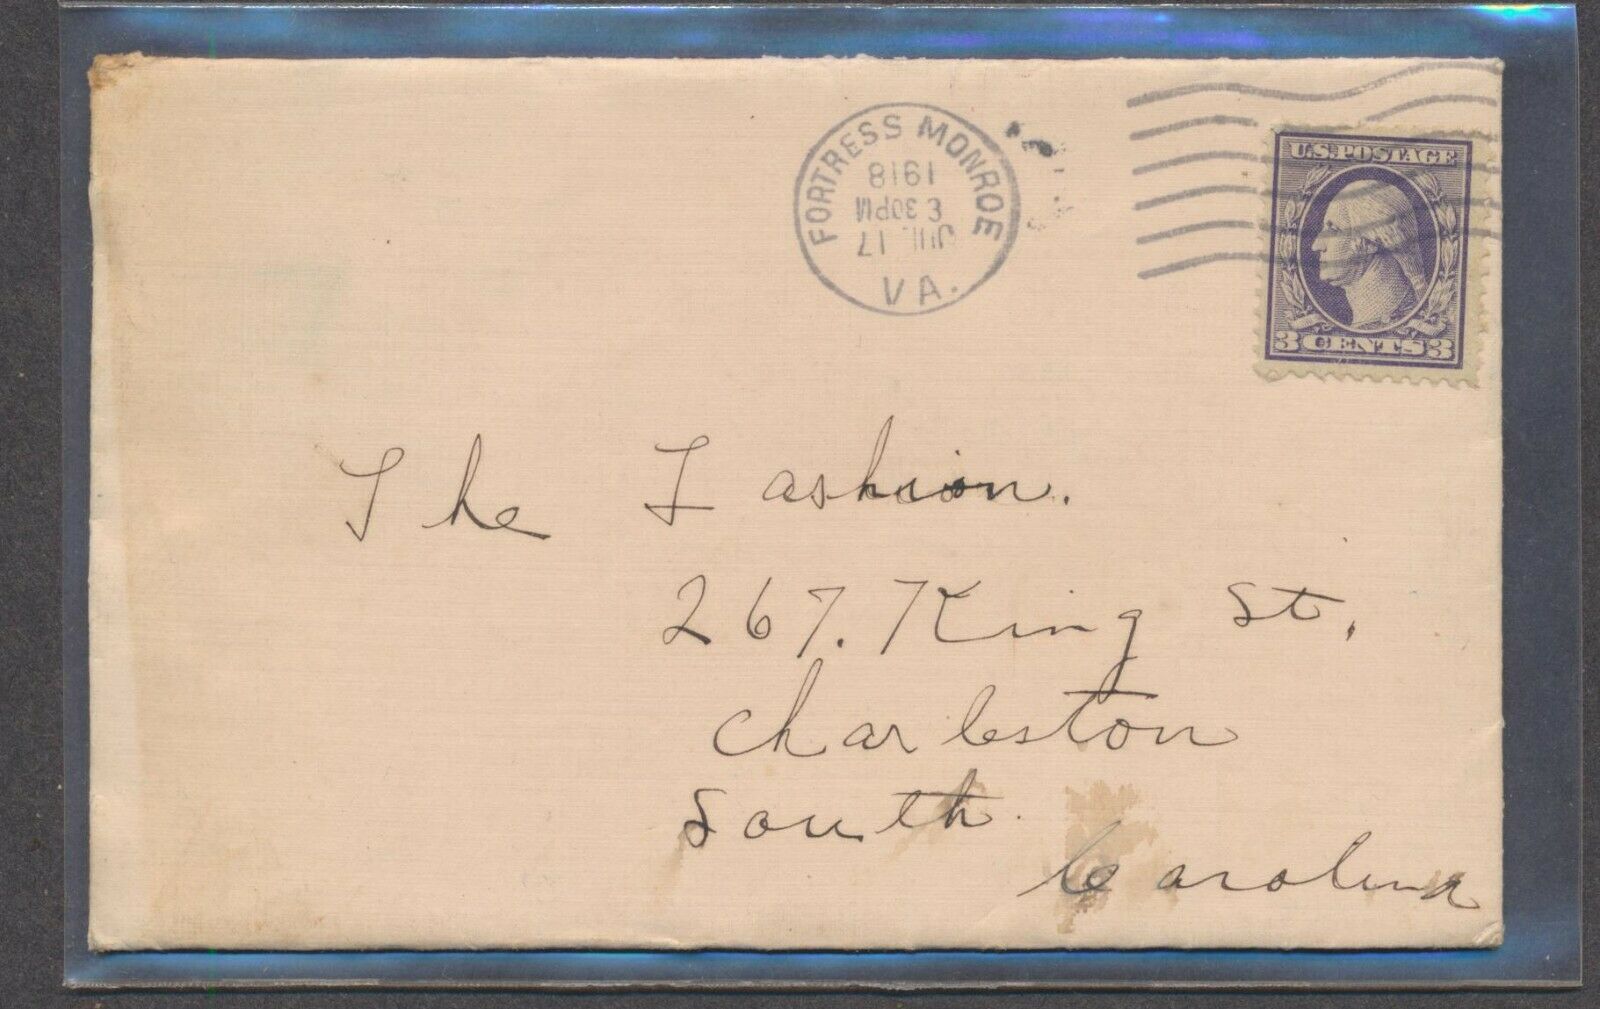 FORTRESS MONROE
JUL 17
3 30PM
1918
VA.
U.S. POSTAGE
3 CENTS 3
The Fashion.
267. King St.
Charleston
South.
Carolina